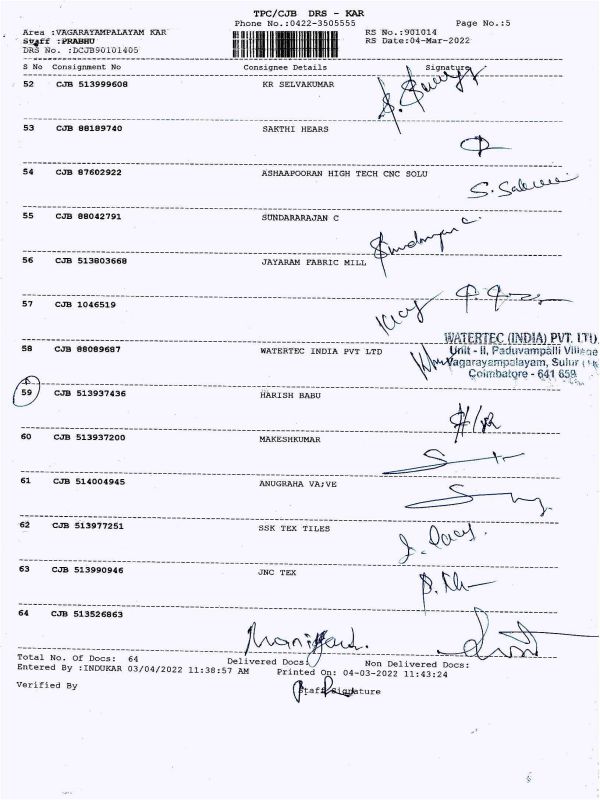 TPC/CJB DRS - KAR
Phone No.:0422-3505555 Page No.:5
Area :VAGARAYAMPALAYAM KAR RS No.:901014
Staff :PRABHU RS Date:04-Mar-2022
DRS No. :DCJB90101405
S No Consignment No Consignee Details Signature
52 CJB 513999608 KR SELVAKUMAR
53 CJB 88189740 SAKTHI HEARS
54 CJB 87602922 ASHAAPOORAN HIGH TECH CNC SOLU
55 CJB 88042791 SUNDARARAJAN C
56 CJB 513803668 JAYARAM FABRIC MILL
57 CJB 1046519
58 CJB 88089687 WATERTEC INDIA PVT LTD
WATERTEC (INDIA) PVT. LTD.
Unit - II, Paduvampalli Village
Vagarayampalayam, Sulur
Coimbatore - 641 659
59 CJB 513937436 HARISH BABU
60 CJB 513937200 MAKESHKUMAR
61 CJB 514004945 ANUGRAHA VA;VE
62 CJB 513977251 SSK TEX TILES
63 CJB 513990946 JNC TEX
64 CJB 513526863
Total No. Of Docs: 64 Delivered Docs: Non Delivered Docs:
Entered By :INDUKAR 03/04/2022 11:38:57 AM Printed On: 04-03-2022 11:43:24
Verified By Staff Signature